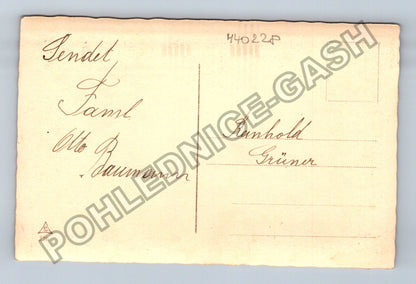 44022P
Sendet
Faml
Otto
Baumann
Reinhold
Grüner
POHLEDNICE-GASH